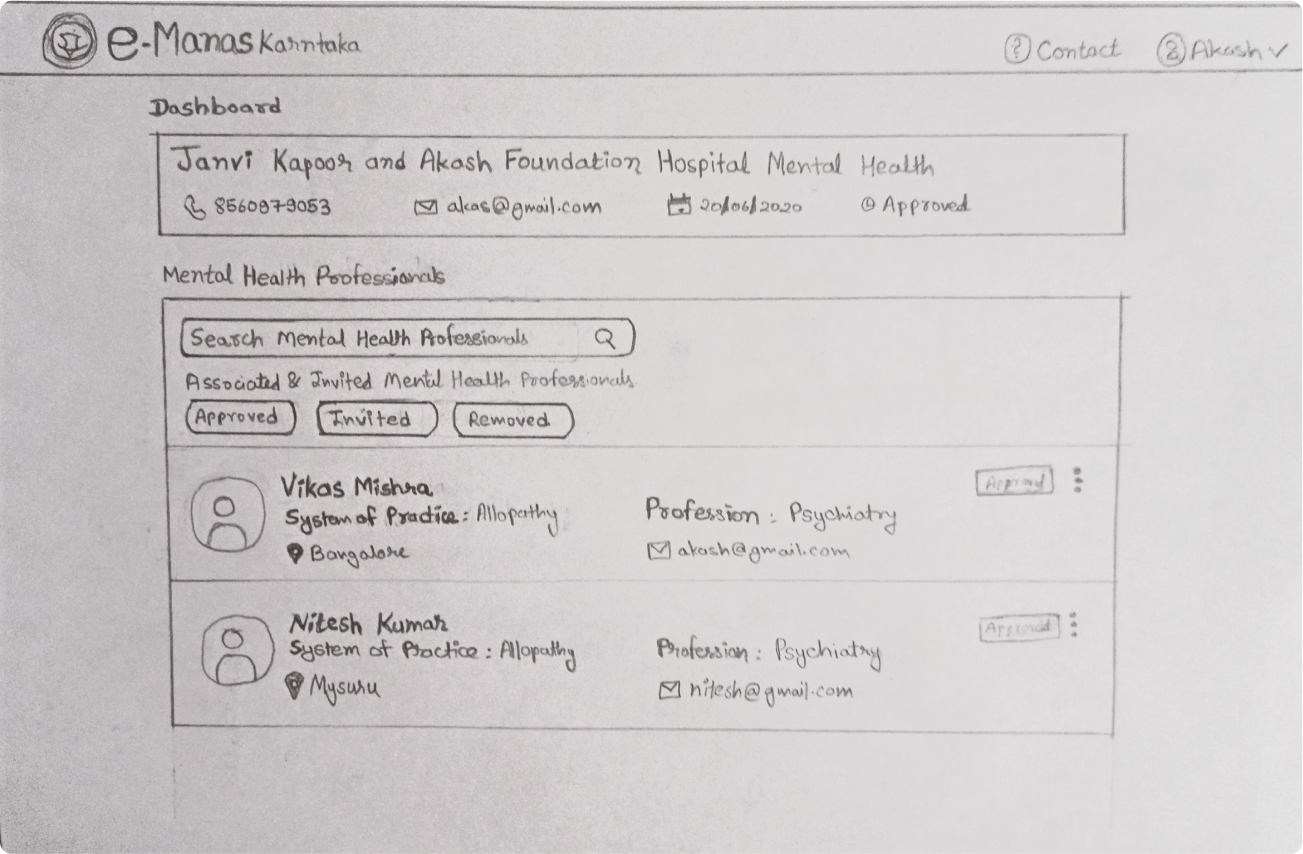 e-Manas Karntaka
Contact
Akash
Dashboard
Janvi Kapoor and Akash Foundation Hospital Mental Health
8560979053 akas@gmail.com 20/06/2020 Approved
Mental Health Professionals
Search Mental Health Professionals
Associated & Invited Mental Health Professionals
Approved Invited Removed
Vikas Mishra
Approved
System of Practice : Allopathy Profession : Psychiatry
Bangalore akash@gmail.com
Nitesh Kumar
Approved
System of Practice : Allopathy Profession : Psychiatry
Mysuru nitesh@gmail.com